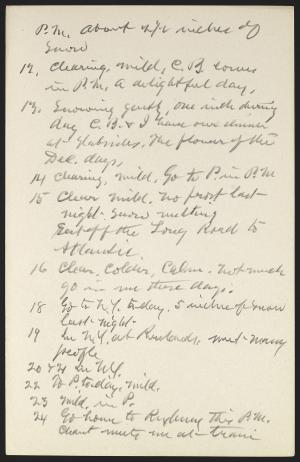 P.M. about 4 1/2 inches of
snow
12, Clearing, mild, C.B. comes
in P.M. A delightful day,
13, Snowing gently, one inch during
day C.B. & I have our dinner
at Slabsides, The flower of the
Dec. days,
14 Clearing, mild. Go to P. in P.M
15 Clear mild. No frost last
night. Snow melting
Est off the Long Road to
Atlantic
16 Clear, Colder, Calm. Not much
go in me these days.
18 Go to N.Y. today. 5 inches of snow
last night.
19 In N.Y. at Rowlands, meet many
people
20 & 21 in N.Y.
22 To P. today, mild.
23 Mild, in P.
24 Go home to Roxbury this P.M.
Chant meets me at train